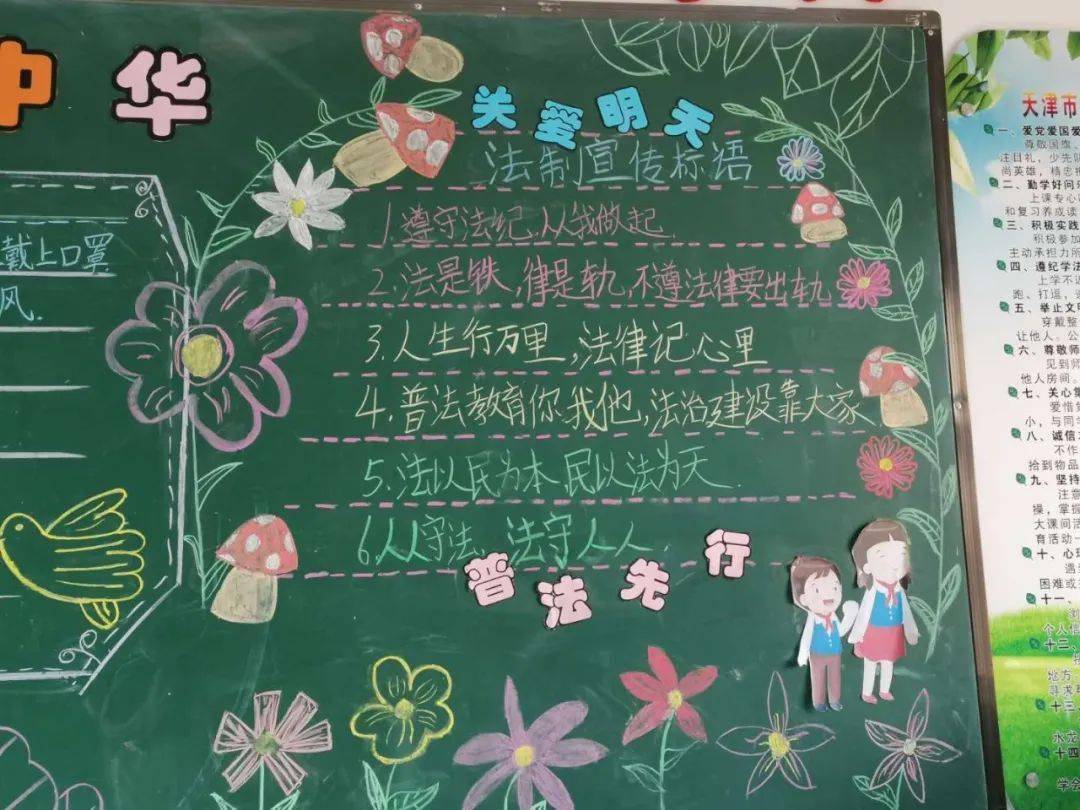 中华
关爱明天
法制宣传标语
1.遵守法纪.从我做起.
2.法是铁,律是轨,不遵法律要出轨
3.人生行万里,法律记心里
4.普法教育你我他,法治建设靠大家
5.法以民为本 民以法为天.
6.人人守法、法守人人.
普法先行
戴上口罩
风.
天津市
一、爱党爱国爱
尊敬国旗、
注目礼,少先队
尚英雄,精忠报
二、勤学好问
上课专心
和复习养成读
三、积极实践
积极参加
主动承担力所
四、遵纪学法
上学不迟
跑、打逗,
五、举止文明
穿戴整
让他人。公
六、尊敬师
见到师
他人房间。
七、关心集
爱惜
小,与同学
八、诚信
不作
拾到物品
九、坚持
注意
操,掌握
大课间活
育活动一
十、心理
遇到
困难或
十一、
个人信
十二、
地方
寻求
十三
水龙
十四
学会